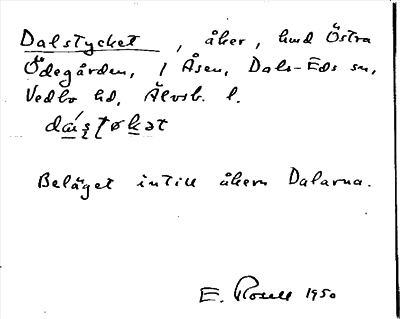 Dalstycket, åker, hmd Östra
Ödegården, / Åsen, Dals-Eds sn,
Vedbo hd, Älvsb. l.
Beläget intill åkern Dalarna.
E. Rosell 1950